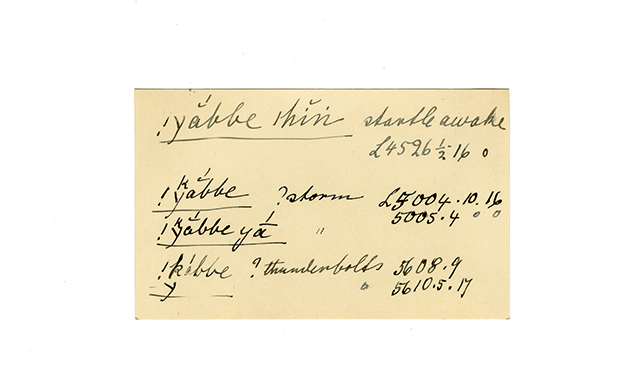 !γábbe thín startle awake
L4526½16 o
!kábbe ?storm L5004.10.16
!kábbe yá " 5005.4 o o
!kóbbe ?thunderbolts 5608.9
γ o 5610.5.17